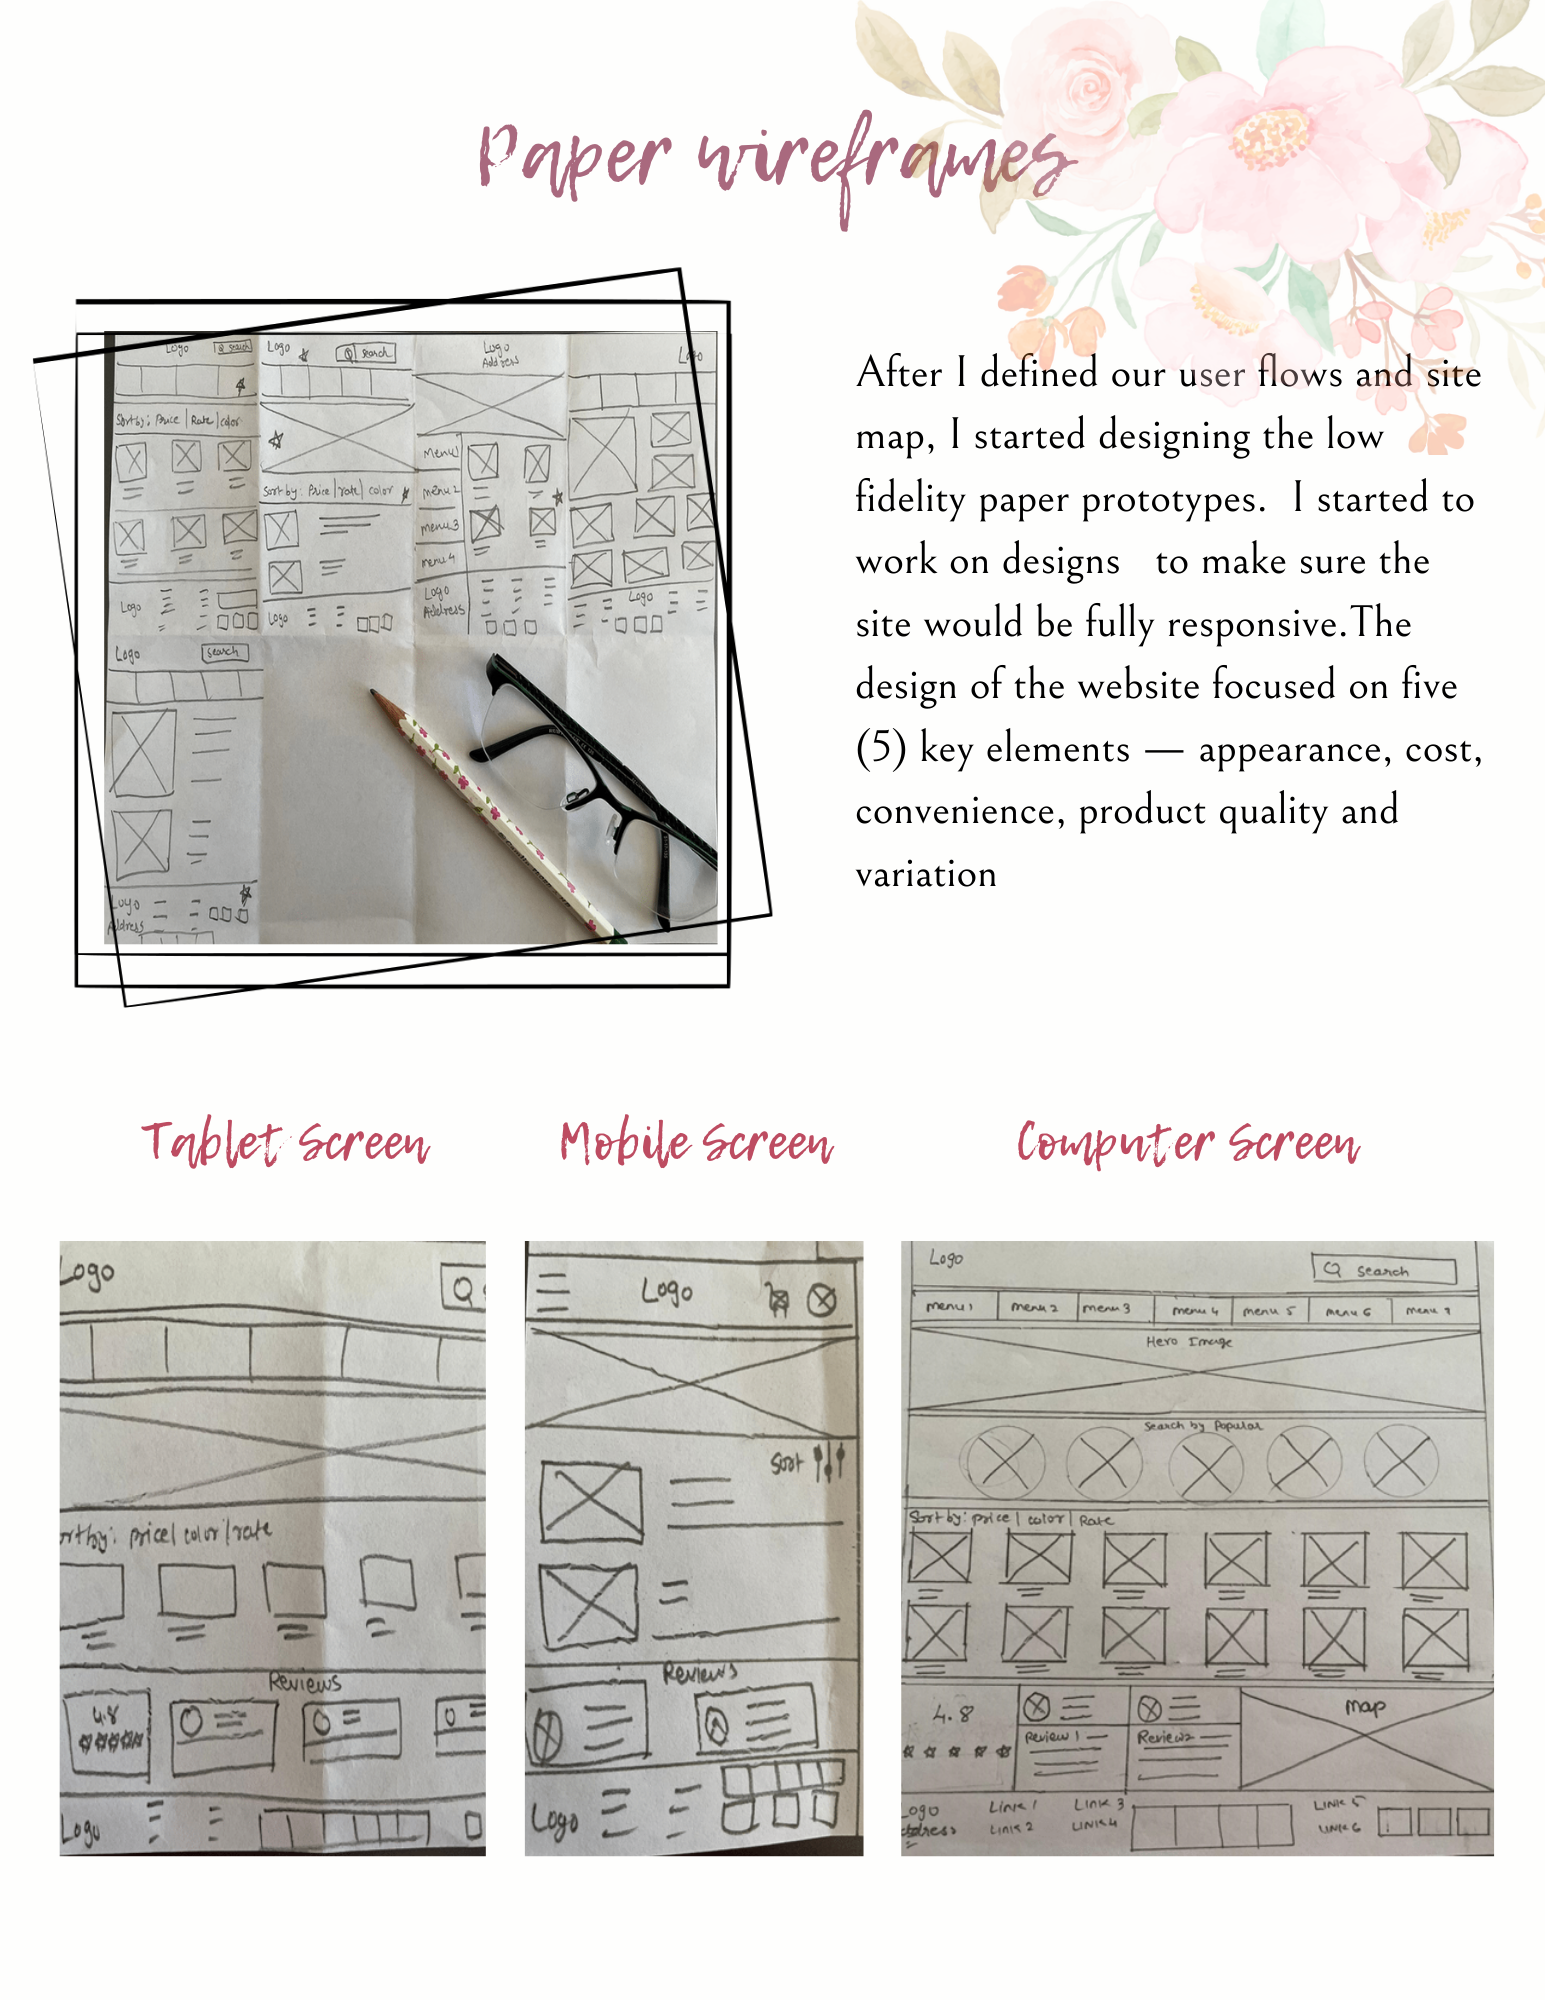 Paper wireframes
Logo
search
Sort by: Price | Rate | color
Logo
Logo
search
Sort by: Price | rate | color
Logo
Logo
Address
Menu 1
menu 2
menu 3
menu 4
Logo
Address
Logo
Logo
Logo
search
Logo
Address
After I defined our user flows and site
map, I started designing the low
fidelity paper prototypes. I started to
work on designs to make sure the
site would be fully responsive.The
design of the website focused on five
(5) key elements — appearance, cost,
convenience, product quality and
variation
Tablet Screen
Logo
price | color | rate
Reviews
4.8
Logo
Mobile Screen
Logo
Sort
Reviews
Logo
Computer Screen
Logo
search
menu 1 menu 2 menu 3 menu 4 menu 5 menu 6 menu 7
Hero Image
Search by Popular
Sort by: price | color | Rate
4.8
Review 1
Review 2
map
Logo
Address
Link 1 Link 3
Link 2 Link 4
Link 5
Link 6